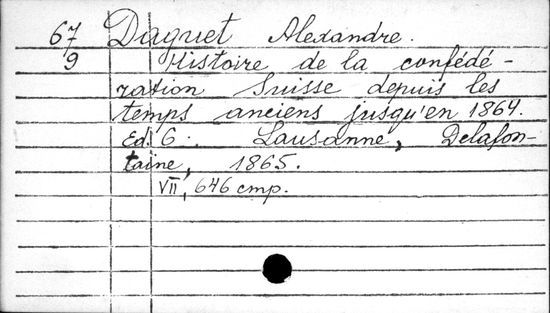 67 Daguet Alexandre.
9 Histoire de la confédé-
ration Suisse depuis les
temps anciens jusqu'en 1864.
Ed. 6. Lausanne, Delafon-
taine, 1865.
VII, 646 стр.